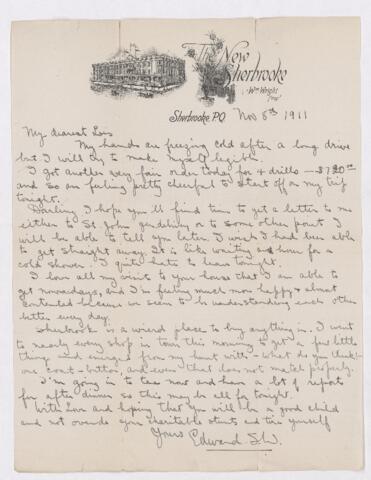 The New
Sherbrooke
Wm Wright
Prop.
Sherbrooke, P.Q. Nov 8th 1911
My dearest Lois
My hands are freezing cold after a long drive
but I will try to make myself legible.
I got another very fair order today for 4 drills — $720.00
and so am feeling pretty cheerful to start off on my trip
tonight.
Darling I hope you'll find time to get a letter to me
either to St. John gen. delivery or to some other point I
will be able to tell you later. I wish I had been able
to get straight away. It is like waiting an hour for a
cold shower. I quite hate to leave tonight.
I love all my visits to your house that I am able to
get nowadays, and I'm feeling much more happy & almost
contented because we seem to be understanding each other
better every day.
Sherbrook is a wierd place to buy anything in. I went
to nearly every shop in town this morning to get a few little
things and emerged from my hunt with - what do you think!-
one coat-button, and even that does not match properly.
I'm going in to tea now and have a lot of reports
for after dinner so this may be all for tonight.
With Love and hoping that you will be a good child
and not overdo your charitable stunts and tire yourself
Yours Edward S.W.